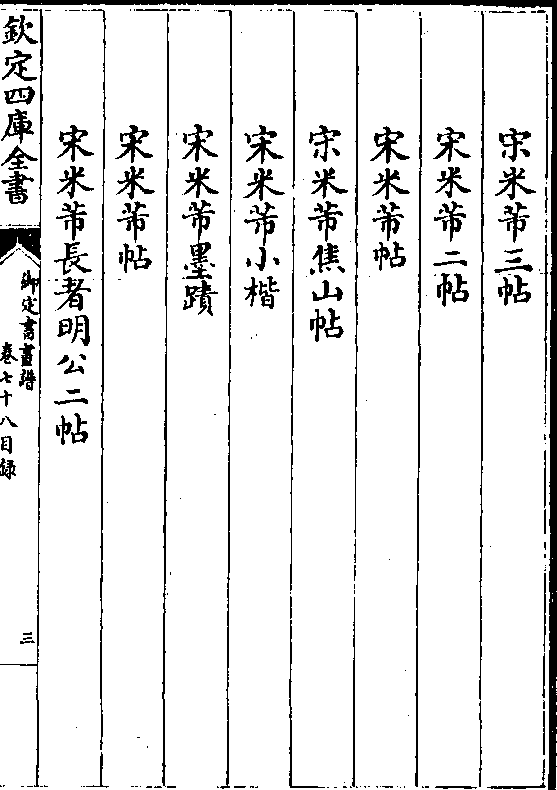 宋米芾三帖
宋米芾二帖
宋米芾帖
宋米芾焦山帖
宋米芾小楷
宋米芾墨蹟
宋米芾帖
宋米芾長者明公二帖
欽定四庫全書
御定書畫譜
卷七十八目録
三